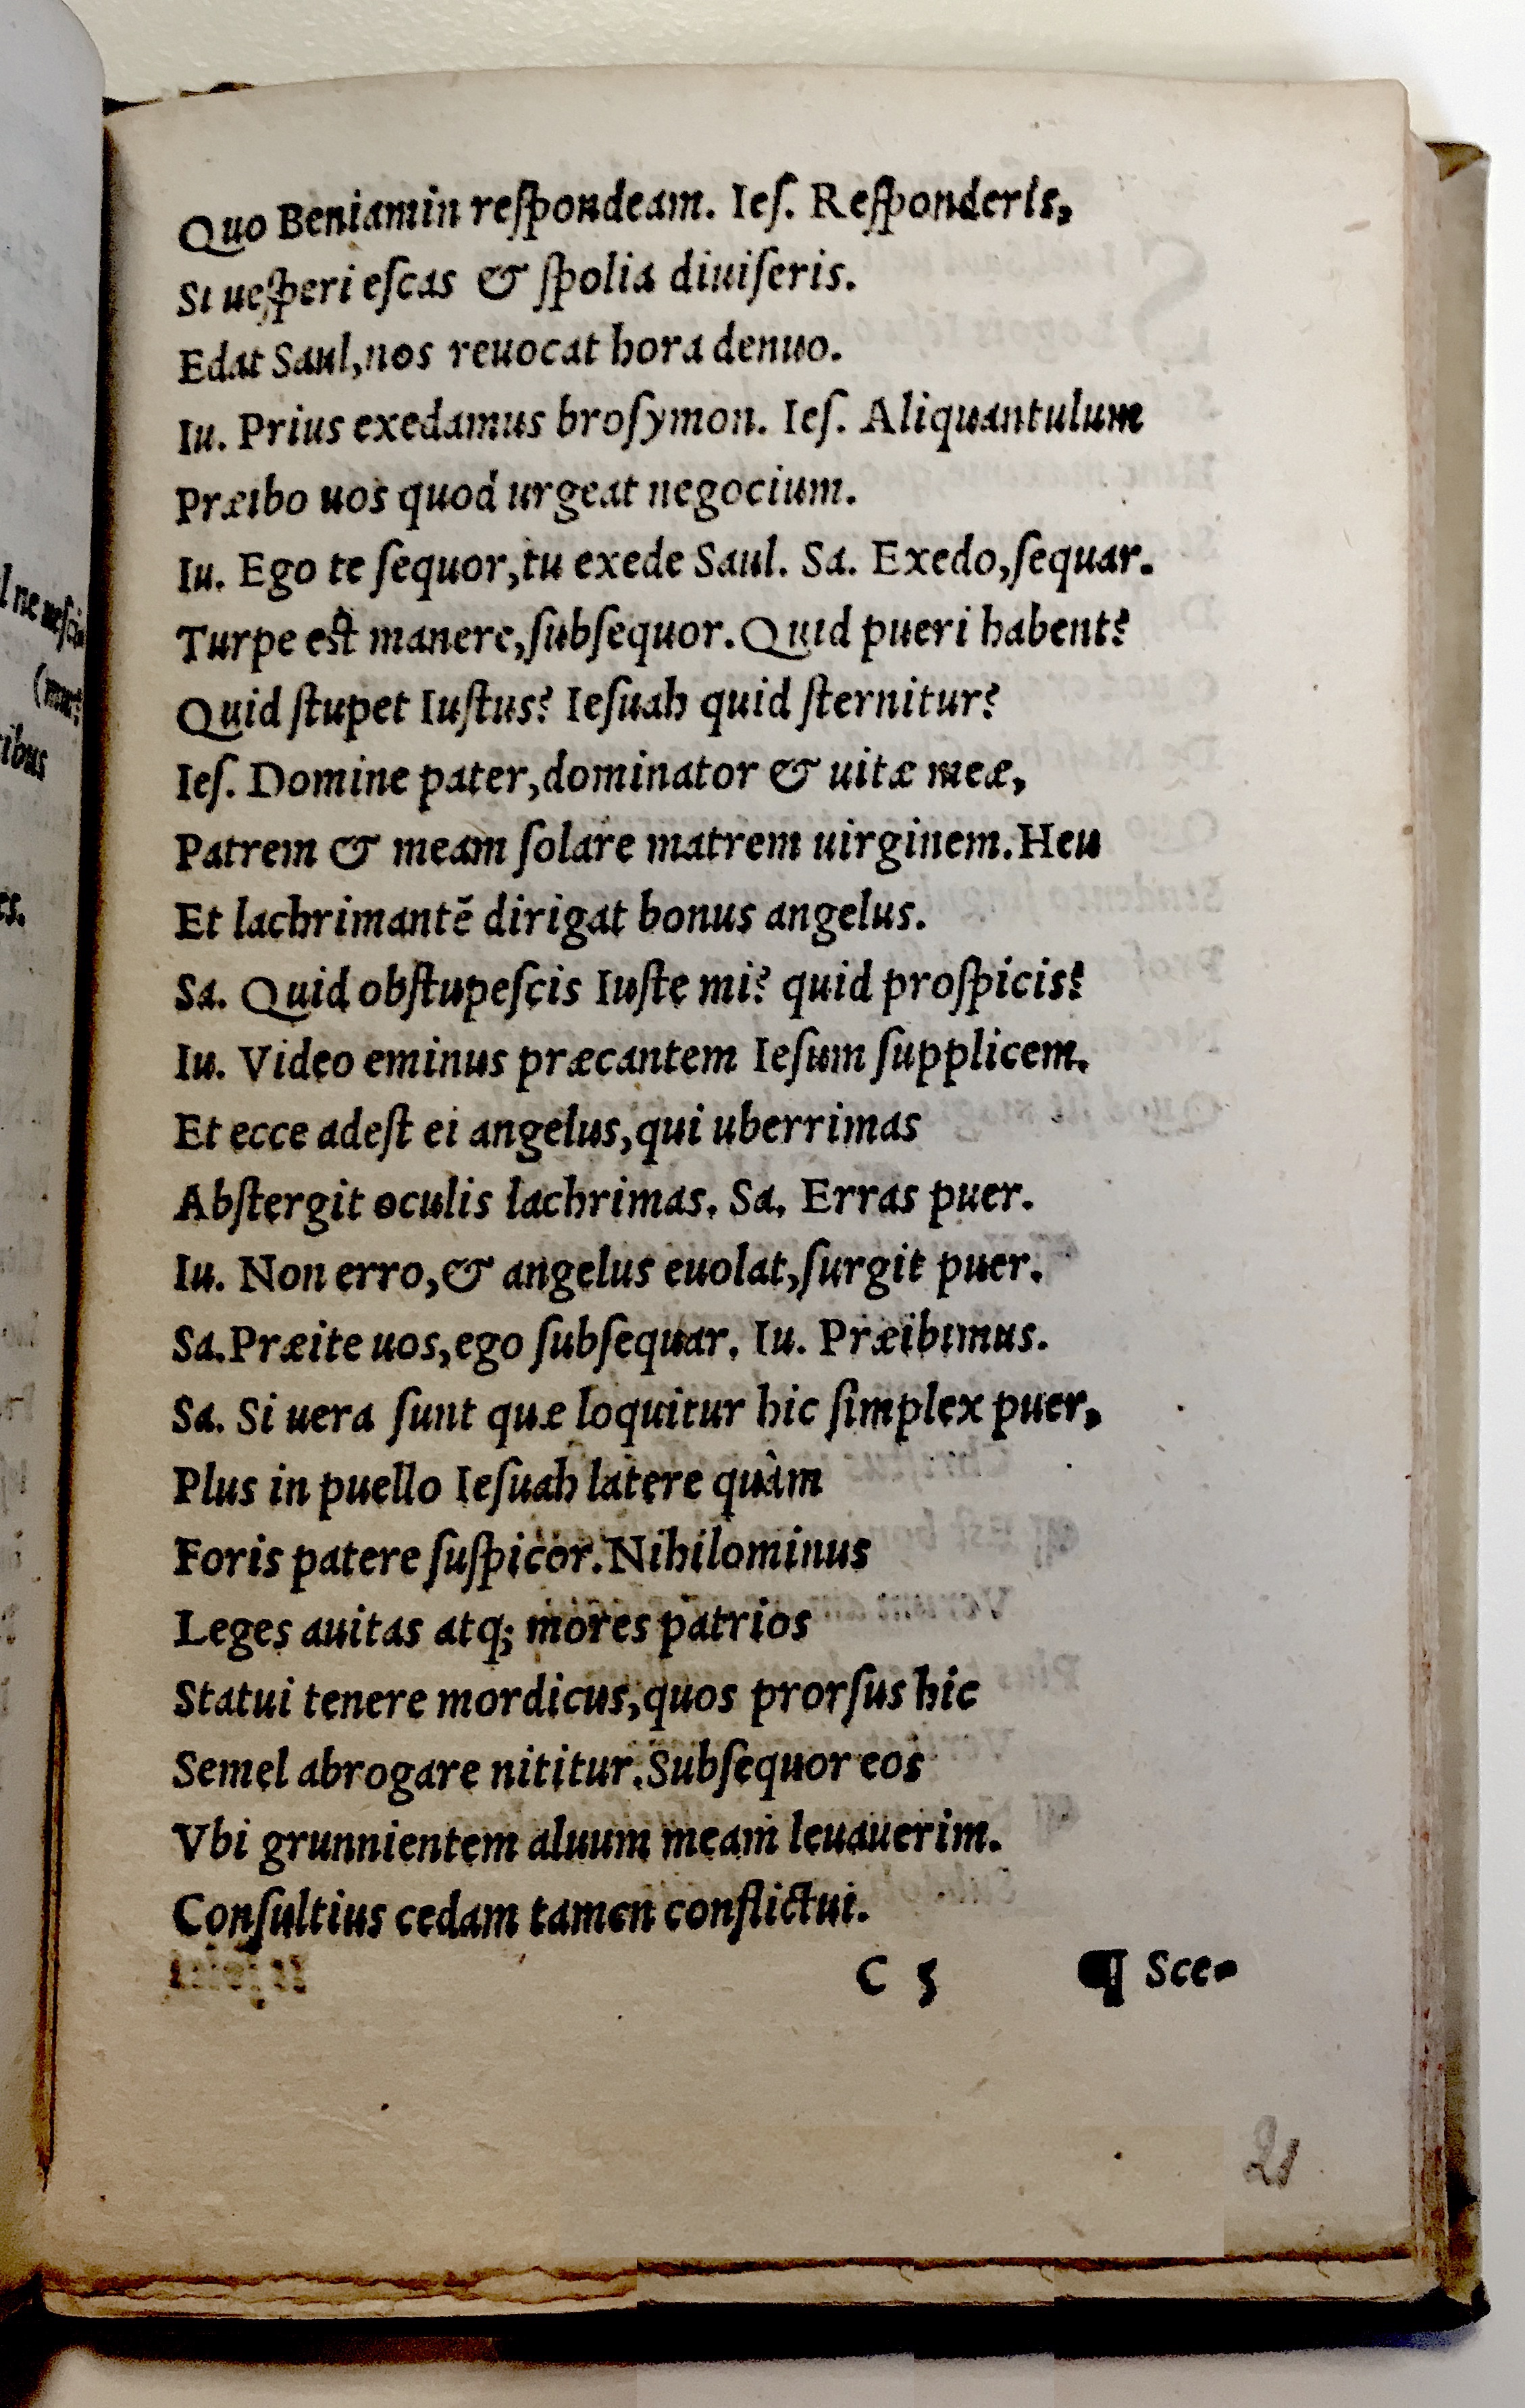 Quo Beniamin reſpondeam. Ieſ. Reſponderis,
Si ueſperi eſcas & ſpolia diuiſeris.
Edat Saul,nos reuocat hora denuo.
Iu. Prius exedamus broſymon. Ieſ. Aliquantulum
Præibo uos quod urgeat negocium.
Iu. Ego te ſequor,tu exede Saul. Sa. Exedo,ſequar.
Turpe eſt manere,ſubſequor. Quid pueri habent?
Quid ſtupet Iuſtus? Ieſuah quid ſternitur?
Ieſ. Domine pater,dominator & uitæ meæ,
Patrem & meam ſolare matrem uirginem. Heu
Et lachrimantē dirigat bonus angelus.
Sa. Quid obſtupeſcis Iuſte mi? quid proſpicis?
Iu. Video eminus præcantem Ieſum ſupplicem.
Et ecce adeſt ei angelus,qui uberrimas
Abſtergit oculis lachrimas. Sa. Erras puer.
Iu. Non erro,& angelus euolat,ſurgit puer.
Sa. Præite uos,ego ſubſequar. Iu. Præibimus.
Sa. Si uera ſunt quæ loquitur hic ſimplex puer,
Plus in puello Ieſuah latere quàm
Foris patere ſuſpicor. Nihilominus
Leges auitas atq; mores patrios
Statui tenere mordicus,quos prorſus hic
Semel abrogare nititur. Subſequor eos
Vbi grunnientem aluum meam leuauerim.
Conſultius cedam tamen conflictui.
C 5 ¶ Sce-
21